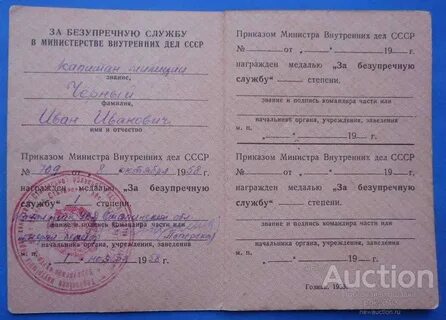 ЗА БЕЗУПРЕЧНУЮ СЛУЖБУ
В МИНИСТЕРСТВЕ ВНУТРЕННИХ ДЕЛ СССР
капитан милиции
звание,
Черный
фамилия,
Иван Иванович
имя и отчество
Приказом Министра Внутренних Дел СССР
№ 709 от 8 октября 1958 г.
награжден медалью „За безупречную
службу" I степени.
звание и подпись командира части или
начальника органа, учреждения, заведения
1958 г.
Приказом Министра Внутренних Дел СССР
№ от „ " 19 г.
награжден медалью „За безупречную
службу" степени.
звание и подпись командира части или
начальника органа, учреждения, заведения
м. п. „ " 19 г.
Приказом Министра Внутренних Дел СССР
№ от „ " 19 г.
награжден медалью „За безупречную
службу" степени.
звание и подпись командира части или
начальника органа, учреждения, заведения
м. п. „ " 19 г.
Auction
newauction.ru